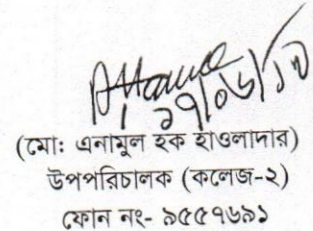 ২৭/০৬/১৩
(মো: এনামুল হক হাওলাদার)
উপপরিচালক (কলেজ-২)
ফোন নং- ৯৫৫৭৬৯১